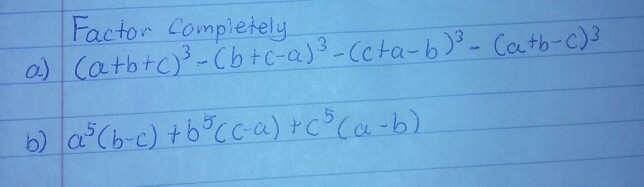 Factor Completely
a) (a+b+c)³-(b+c-a)³-(c+a-b)³- (a+b-c)³
b) a⁵(b-c) +b⁵(c-a) +c⁵(a-b)